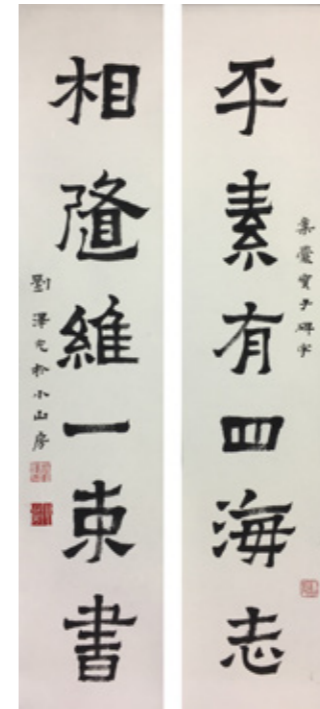 平素有四海志
集爨寶子碑字
相隨維一束書
劉澤光於小山房